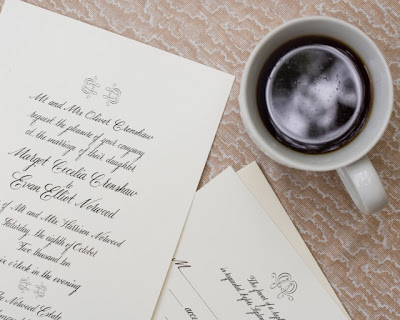 Mr. and Mrs. Oliver Crenshaw
request the pleasure of your company
at the marriage of their daughter
Margot Cecilia Crenshaw
to
Evan Elliot Norwood
of Mr. and Mrs. Harrison Norwood
Saturday, the eighth of October
Two thousand ten
six o'clock in the evening
The Norwood Estate
M
The favor of
is requested
acce